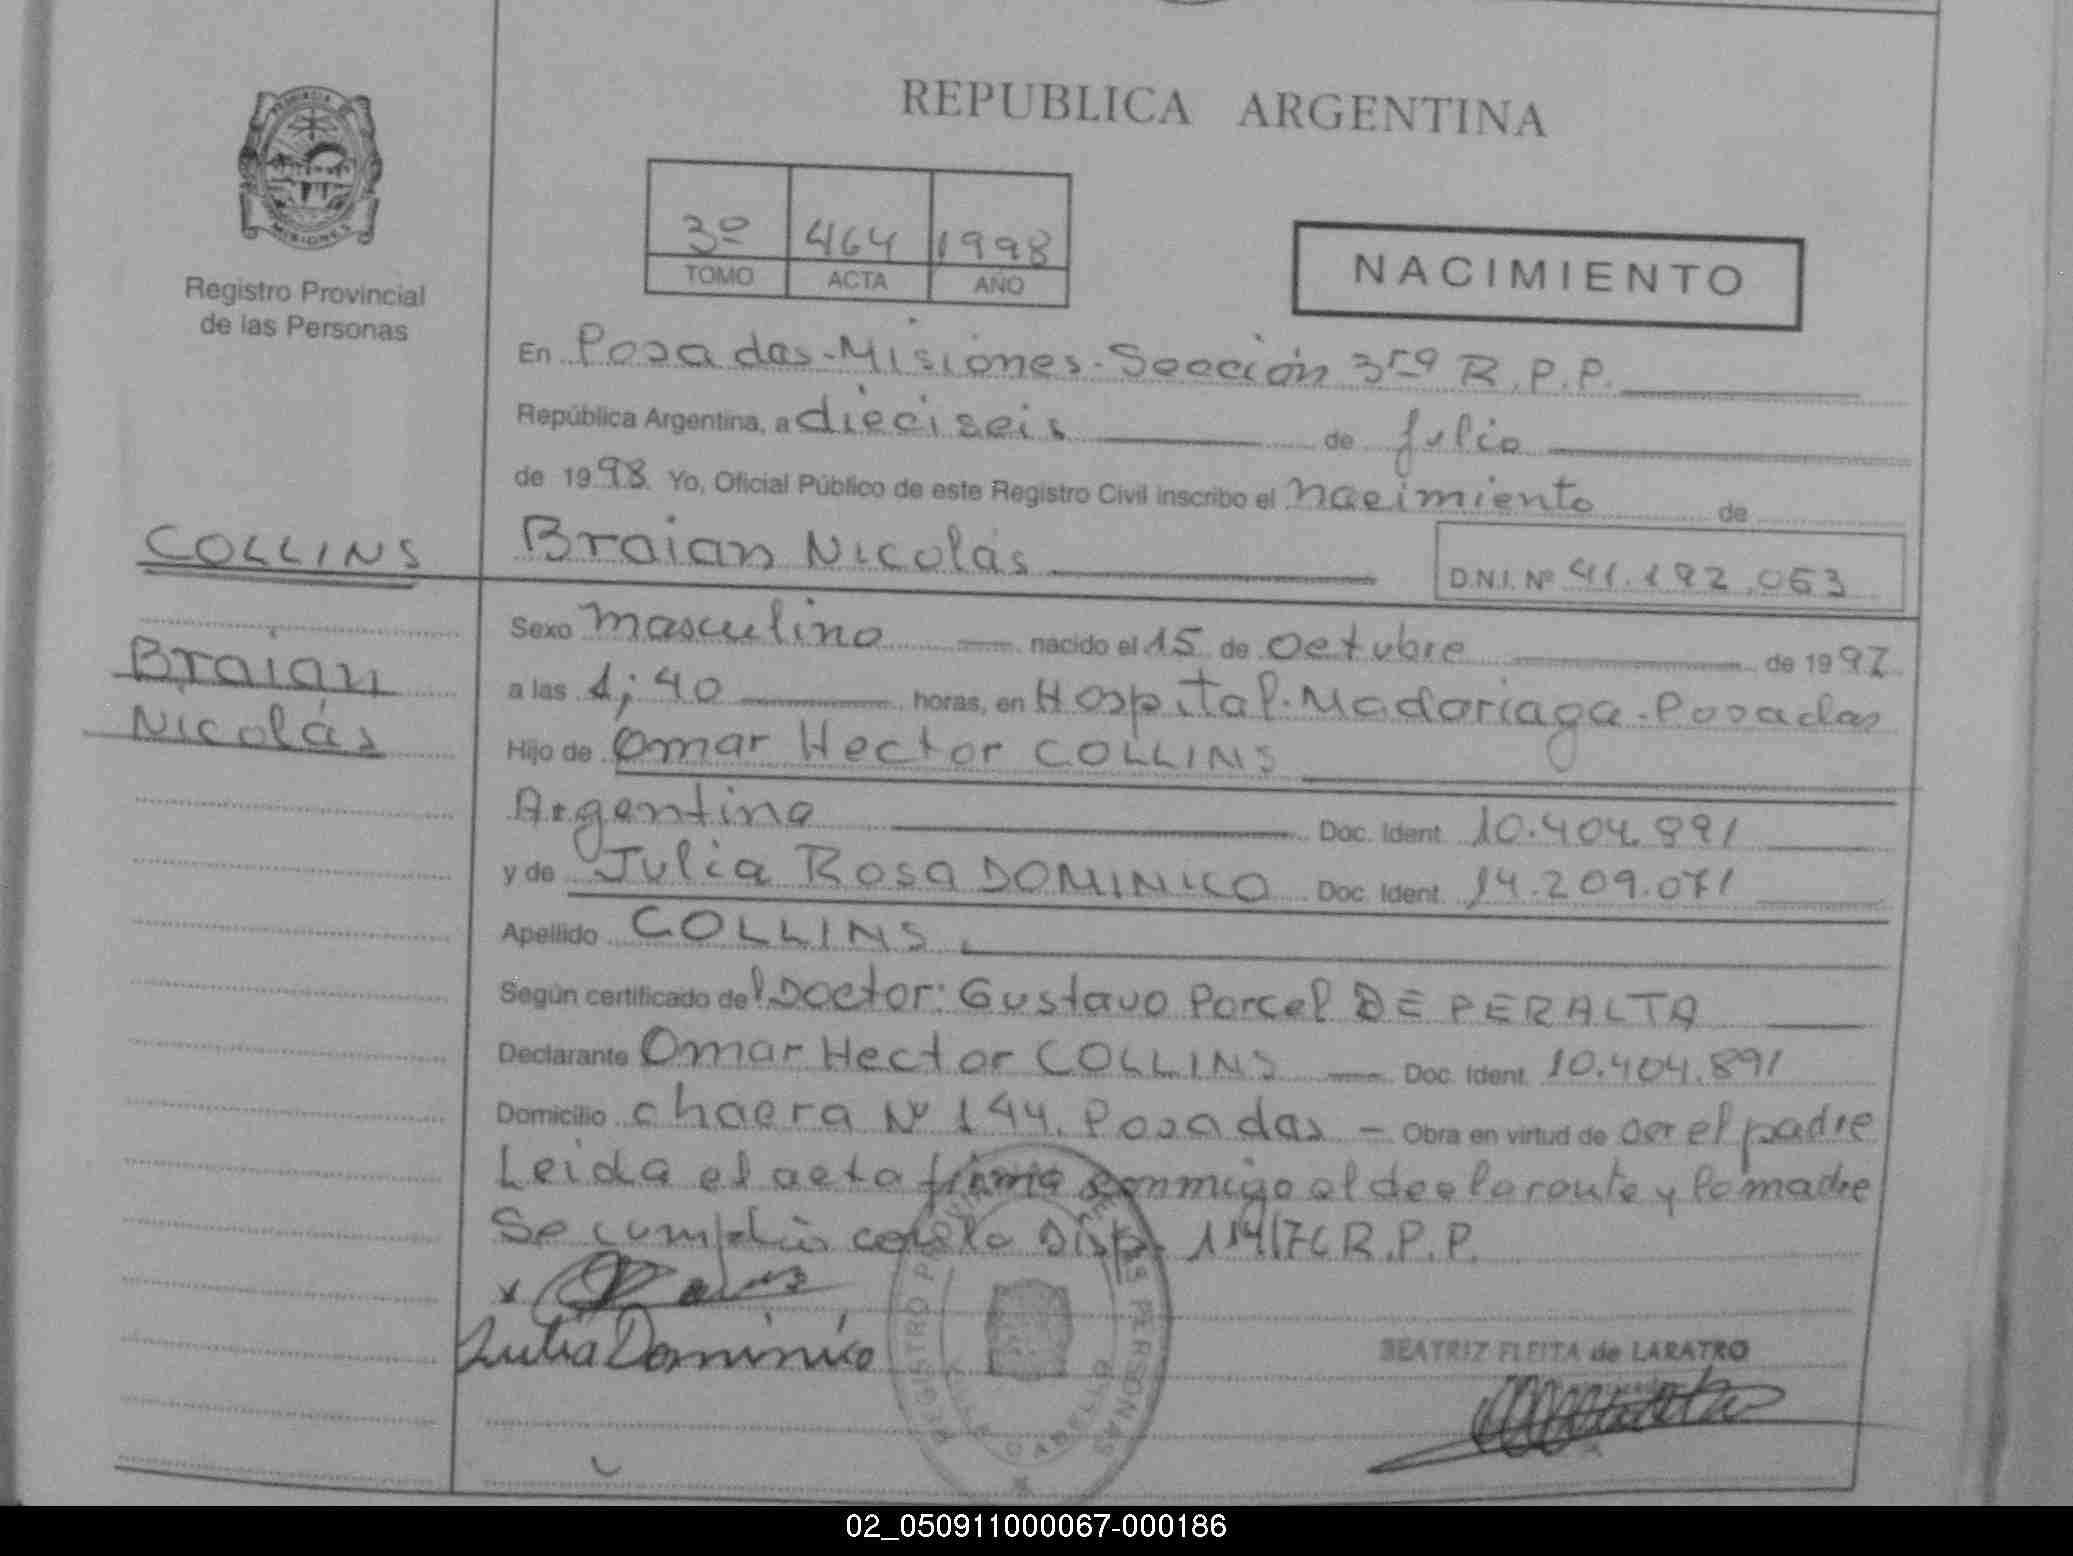 REPUBLICA ARGENTINA
PROVINCIA
MISIONES
Registro Provincial
de las Personas
3º 464 1998
TOMO ACTA AÑO
NACIMIENTO
En Posadas-Misiones-Sección 3ra R.P.P.
República Argentina, a dieciseis de julio
de 1998. Yo, Oficial Público de este Registro Civil inscribo el nacimiento de
COLLINS
Braian Nicolás
D.N.I. Nº 41.192.063
Braian
Nicolás
Sexo masculino nacido el 15 de octubre de 1997
a las 1;40 horas, en Hospital-Madariaga-Posadas
Hijo de Omar Hector COLLINS
Argentino Doc. Ident. 10.404.891
y de Julia Rosa DOMINICO Doc. Ident. 14.209.071
Apellido COLLINS
Según certificado del Doctor: Gustavo Porcel DE PERALTA
Declarante Omar Hector COLLINS Doc. Ident. 10.404.891
Domicilio chacra Nº 144. Posadas - Obra en virtud de ser el padre
Leida el acta firma conmigo el declarante y la madre
Se cumplió con la Disp. 114/76 R.P.P.
Julia Dominico
REGISTRO PROVINCIAL DE LAS PERSONAS
VILLA CABELLO
BEATRIZ FLEITA de LARATRO
02_050911000067-000186